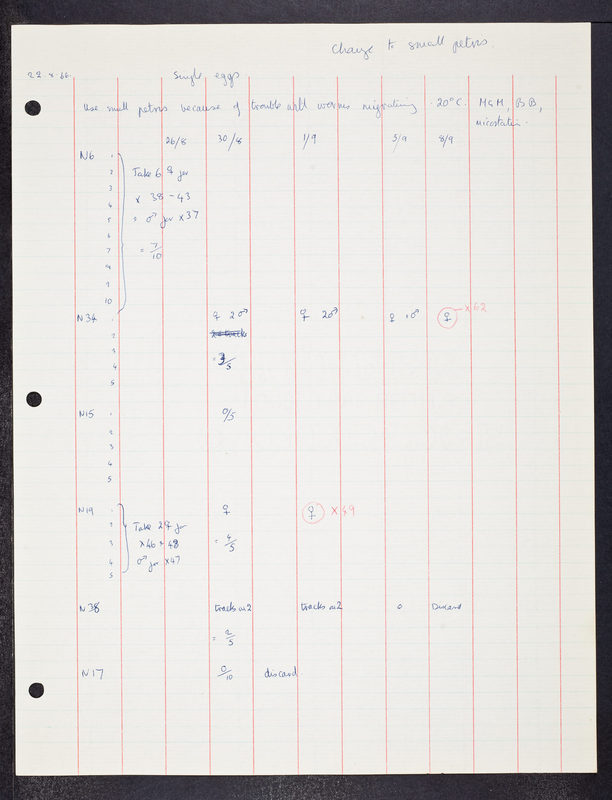 Change to small petris.
22.8.66. Single eggs
Use small petris because of trouble with worms migrating 20°C. M&M, BB,
micostatin.
26/8 30/8 1/9 5/9 8/9
N6 1
2 Take 6 ♀ for
3
4 x 38 - 43
5 = ♂ for x37
6
7 = 7/10
8
9
10
N34 1 ♀ 2♂ ♀ 2♂ ♀ 1♂ ♀ x62
2
3
4 = 3/5
5
N15 1 0/5
2
3
4
5
N19 1 ♀ ♀ x49
2 Take 2♀ for
3 x46 + 48 = 4/5
4 ♂ for x47
5
N38 tracks on 2 tracks on 2 0 Discard
= 2/5
N17 0/10 discard